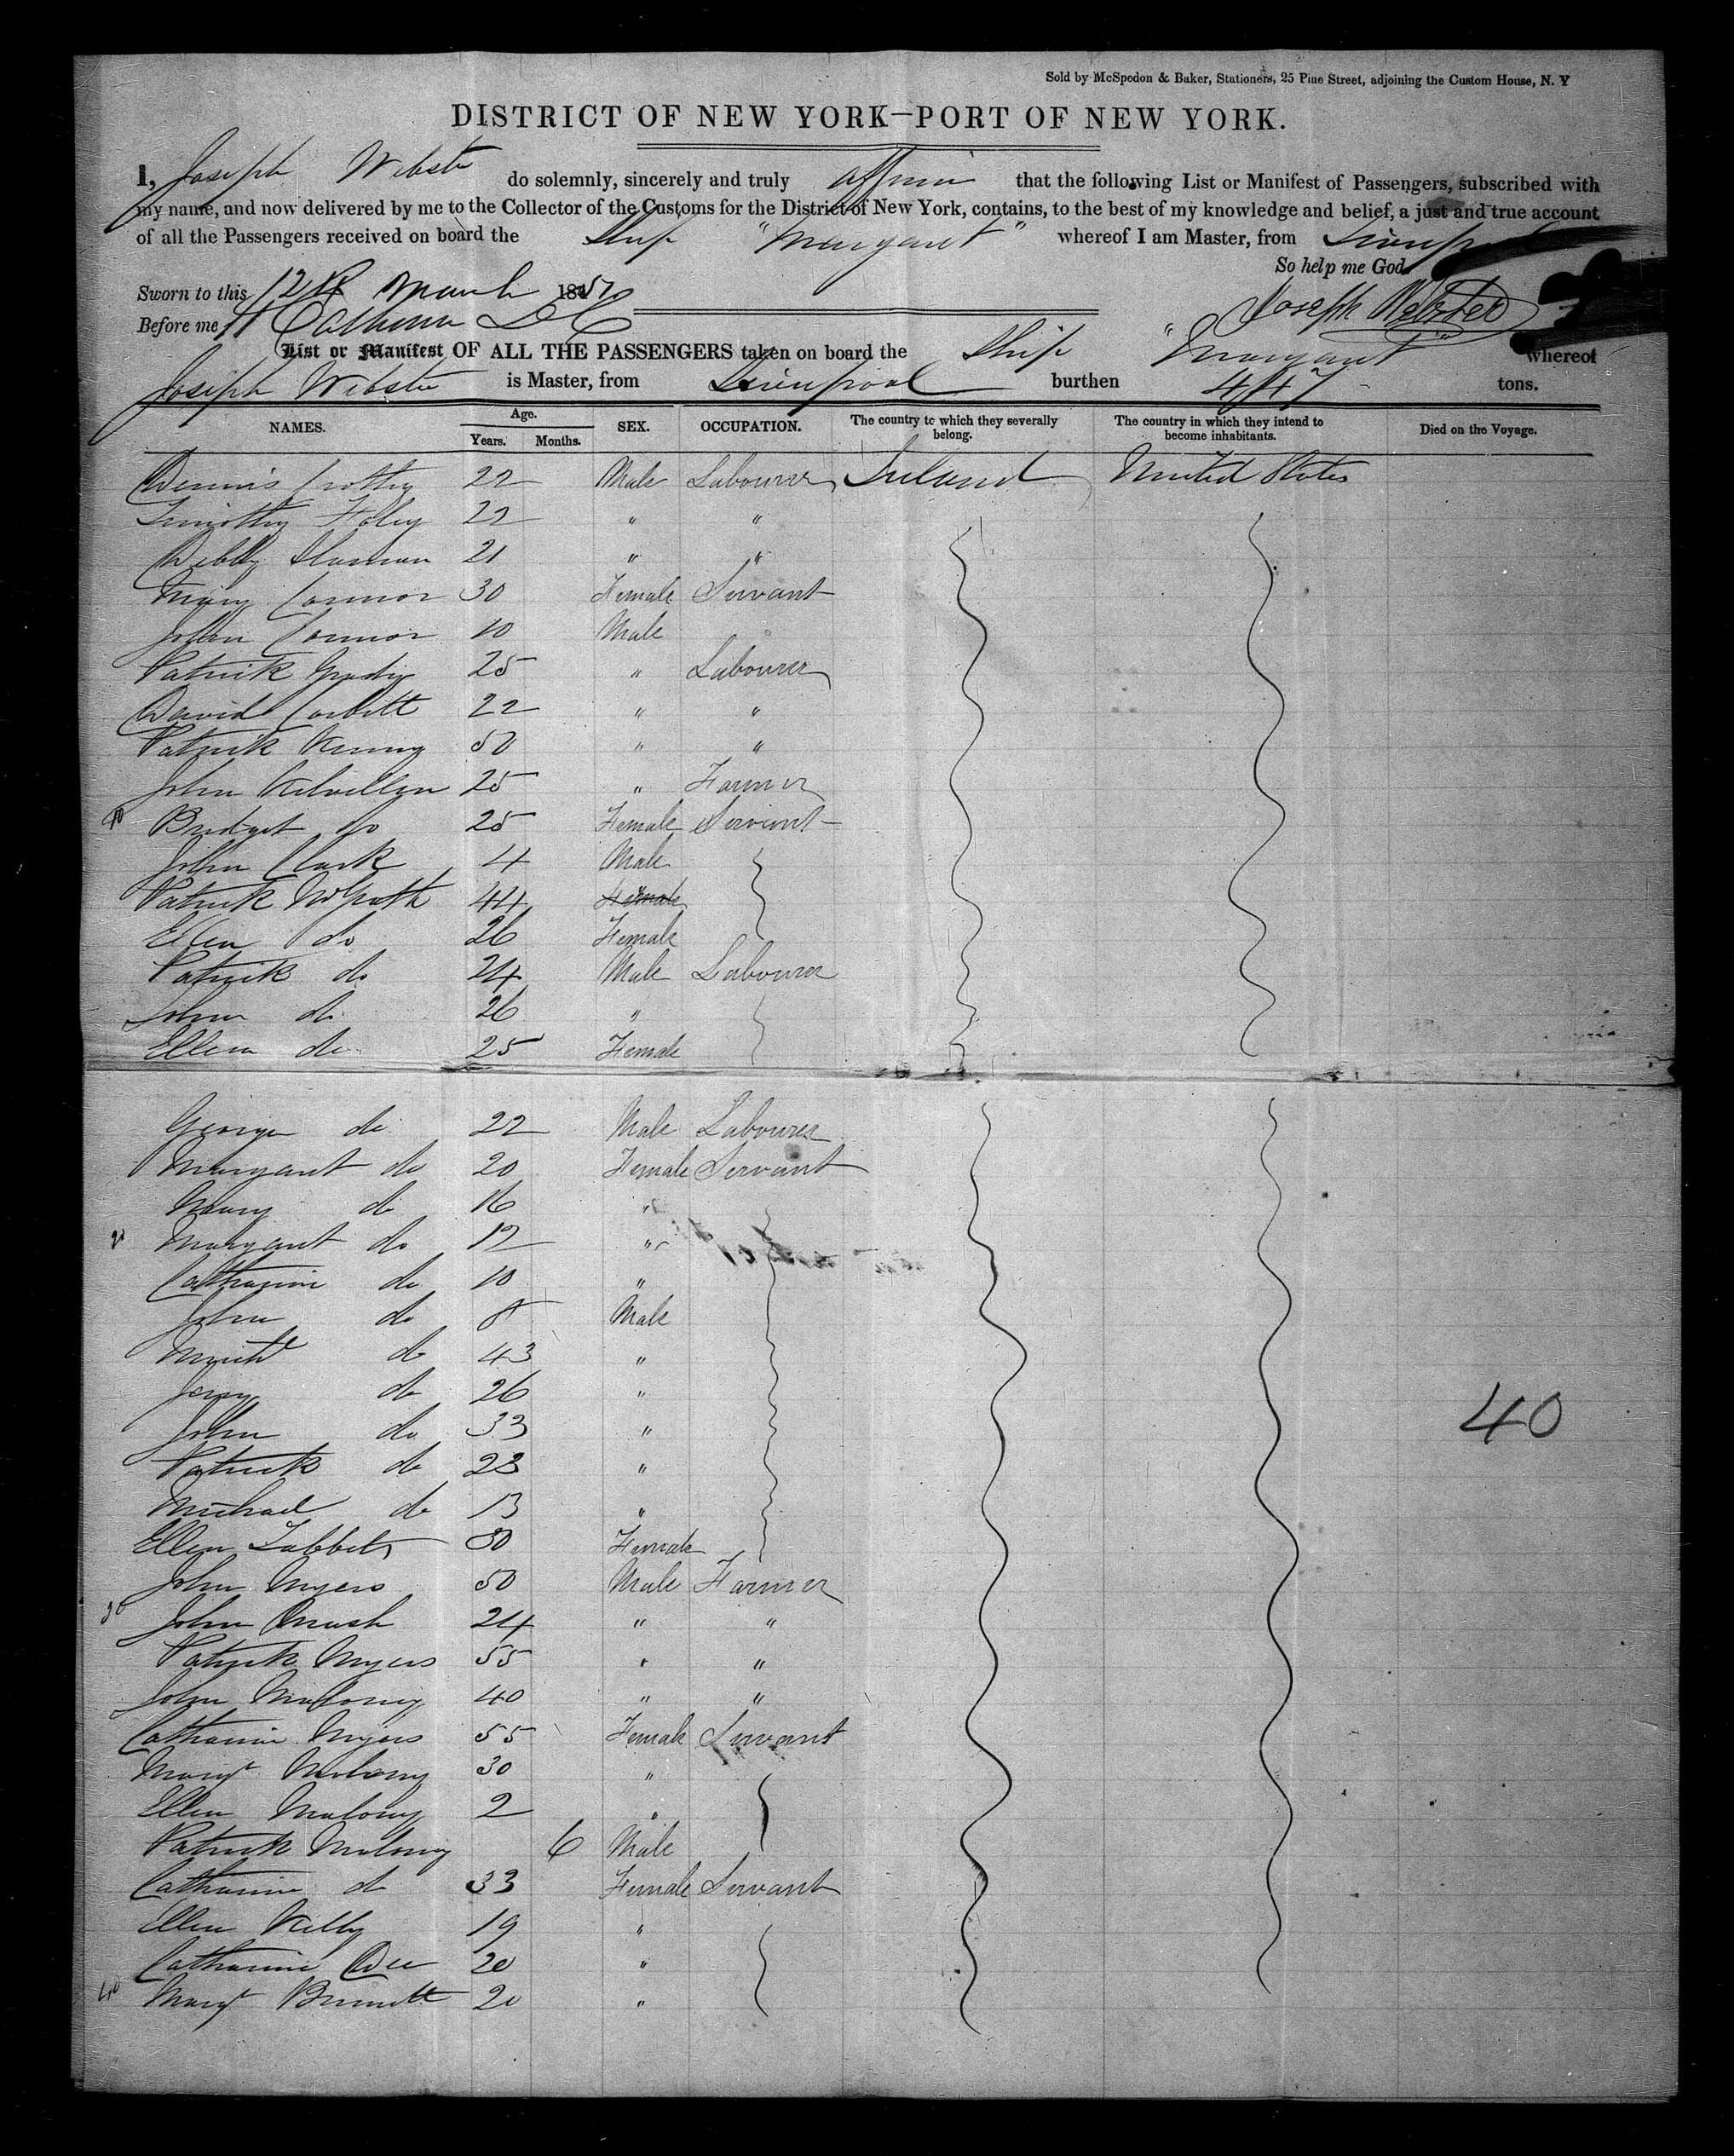 Sold by McSpedon & Baker, Stationers, 25 Pine Street, adjoining the Custom House, N. Y
DISTRICT OF NEW YORK—PORT OF NEW YORK.
I, Joseph Webster do solemnly, sincerely and truly affirm that the following List or Manifest of Passengers, subscribed with
my name, and now delivered by me to the Collector of the Customs for the District of New York, contains, to the best of my knowledge and belief, a just and true account
of all the Passengers received on board the Ship "Margaret" whereof I am Master, from Liverpool
So help me God.
Sworn to this 12th March 1850
Joseph Webster
Before me Calhoun
List or Manifest OF ALL THE PASSENGERS taken on board the Ship "Margaret" whereof
Joseph Webster is Master, from Liverpool burthen 447 tons.
NAMES. Age. Years. Months. SEX. OCCUPATION. The country to which they severally belong. The country in which they intend to become inhabitants. Died on the Voyage.
Dennis Crotty 22 Male Labourer Ireland United States
Timothy Foley 22 " "
21 " "
Mary Connor 30 Female Servant
John Connor 10 Male
Patrick Grady 25 " Labourer
David Corbitt 22 " "
Patrick Kenny 50 " "
John 25 " Farmer
10 Bridget do 25 Female Servant
John Clark 4 Male
Patrick McGrath 44 Female
Ellen do 26 Female
Patrick do 24 Male Labourer
John do 26 "
Ellen do 25 Female
George do 22 Male Labourer
Margaret do 20 Female Servant
Mary do 16 "
20 Margaret do 12 "
Catharine do 10 "
John do 8 Male
Michl do 43 "
do 26 "
John do 33 "
Patrick do 23 "
Michael do 13 "
Ellen 30 Female
John Myers 50 Male Farmer
30 John 24 " "
Patrick Myers 55 " "
John Malony 40 " "
Catharine Myers 55 Female Servant
Margt Malony 30 "
Ellen Malony 2 "
Patrick Malony 6 Male
Catharine do 33 Female Servant
Ellen Kelly 19 "
Catharine Dee 20 "
40 Margt Burnett 20 "
40